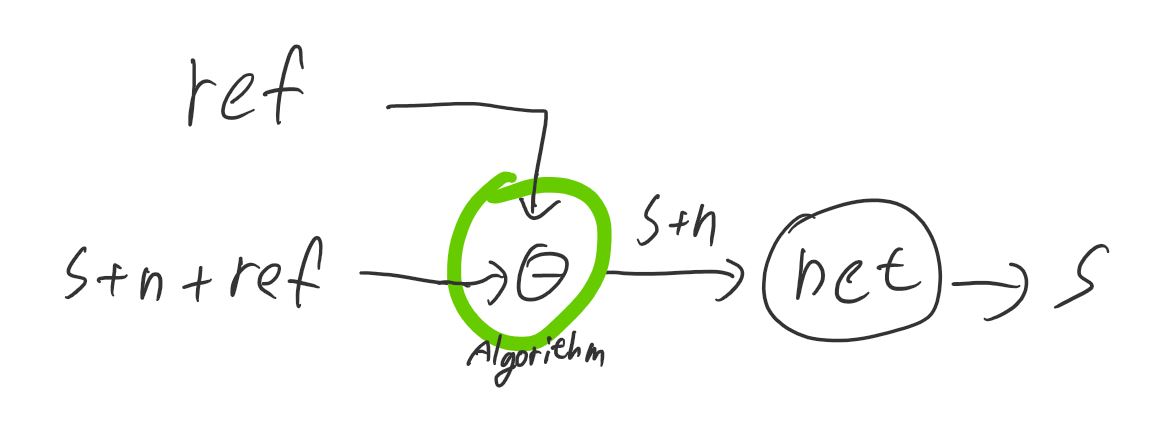 ref
s+n+ref
⊖
s+n
net
s
Algorithm